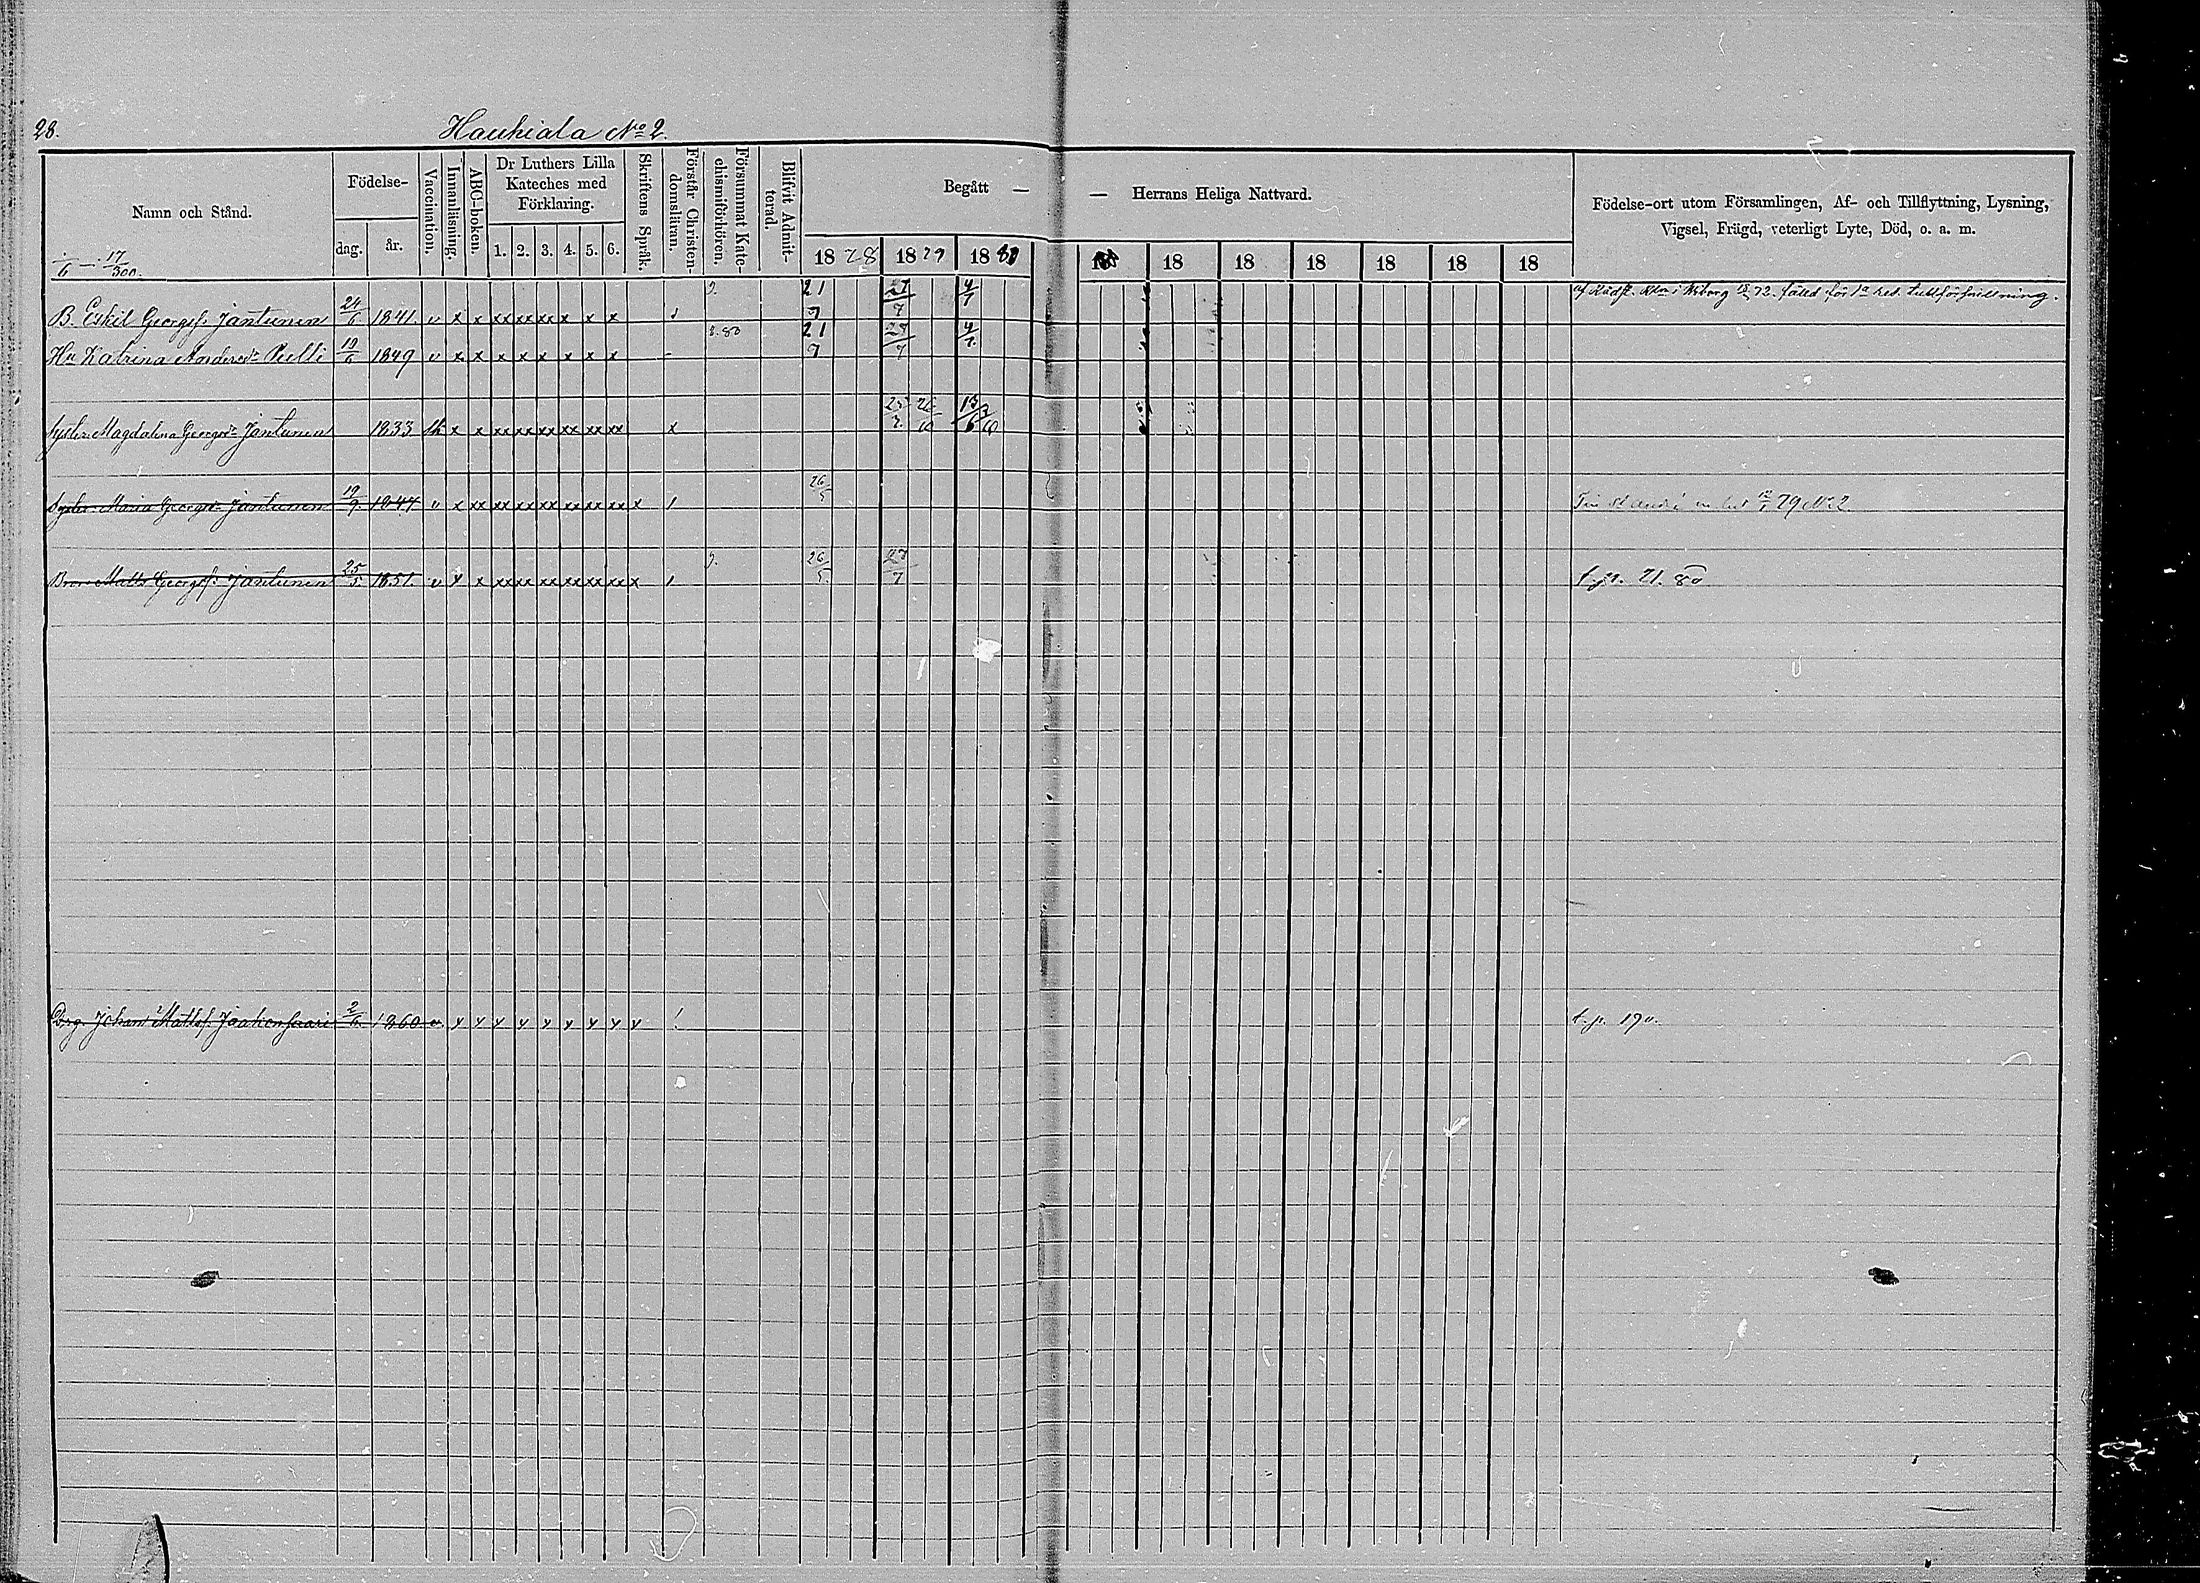 28.
Hauhiala No 2.
Namn och Stånd.
Födelse-
dag.
år.
Vaccination.
Innanläsning.
ABC-boken.
Dr Luthers Lilla Kateches med Förklaring.
1. 2. 3. 4. 5. 6.
Skriftens Språk.
Förstår Christendomsläran.
Försummat Katechismiförhören.
Blifvit Admitterad.
Begått — — Herrans Heliga Nattvard.
1878 1879 1880 18 18 18 18 18 18
Födelse-ort utom Församlingen, Af- och Tillflyttning, Lysning, Vigsel, Frägd, veterligt Lyte, Död, o. a. m.
17/300.
B. Eskil Georgsf. Jantunen 24/6 1841. v x x xx xx xx x x x 21/7 27/7 4/7
Hu Katrina Andersdr Pelli 19/6 1849 v x x x x x x x x - 2.80 21/7 27/7 4/7
Syster Magdalena Georgsdr Jantunen 1833 x x xx xx xx xx xx xx x
Syster Maria Georgsdr Jantunen 19/9 1847 v x xx xx xx xx xx xx xx x 26/5 79 No 2.
Bror Matts Georgsf. Jantunen 25/5 1851. v x x xx xx xx xx xx xx x 26/5 27/7 t. p. 21. 80
Johan Mattsf. Jaakonsaari 2/6 1860 v y y y y y y y y y t. p. 190.